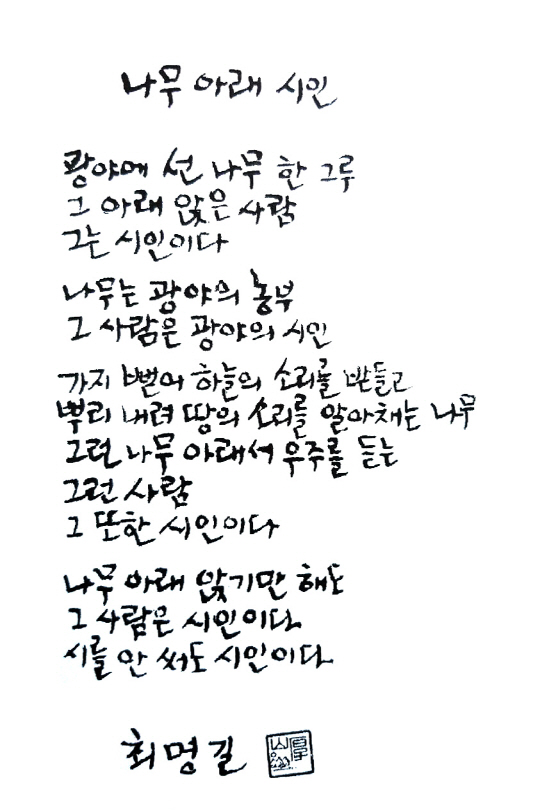 나무 아래 시인
광야에 선 나무 한 그루
그 아래 앉은 사람
그는 시인이다
나무는 광야의 농부
그 사람은 광야의 시인
가지 뻗어 하늘의 소리를 받들고
뿌리 내려 땅의 소리를 알아채는 나무
그런 나무 아래서 우주를 듣는
그런 사람
그 또한 시인이다
나무 아래 앉기만 해도
그 사람은 시인이다
시를 안 써도 시인이다
최명길